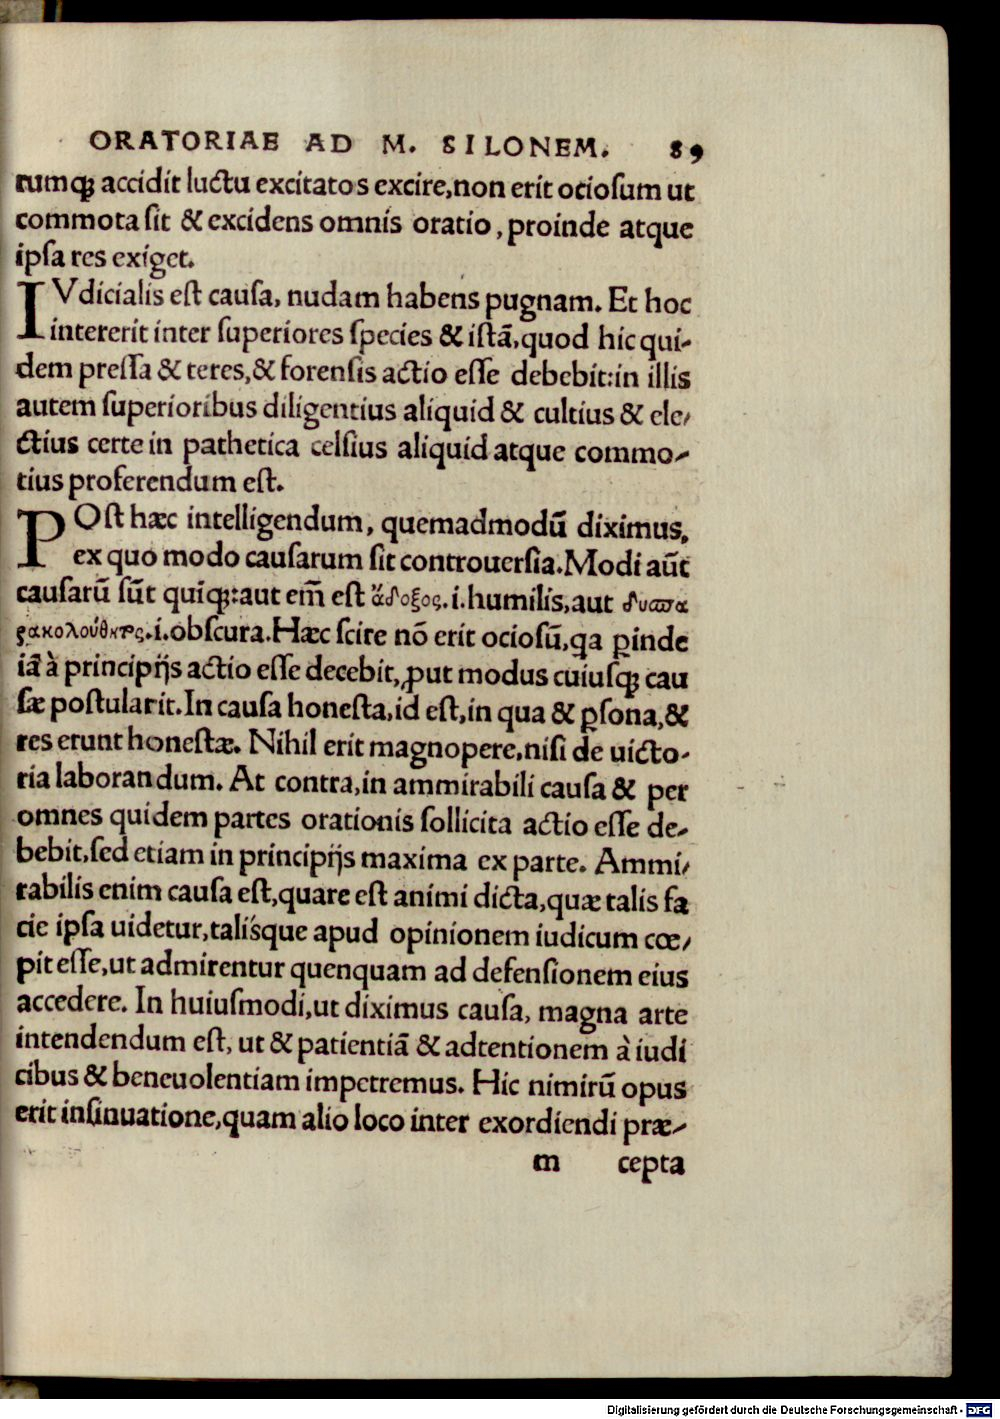 ORATORIAE AD M. SILONEM. 89
rumq; accidit luctu excitatos excire,non erit ociosum ut
commota sit & excidens omnis oratio, proinde atque
ipsa res exiget.
IVdicialis est causa, nudam habens pugnam. Et hoc
intererit inter superiores species & istā,quod hic qui-
dem pressa & teres,& forensis actio esse debebit:in illis
autem superioribus diligentius aliquid & cultius & ele/
ctius certe in pathetica celsius aliquid atque commo-
tius proferendum est.
POst hæc intelligendum, quemadmodū diximus,
ex quo modo causarum sit controuersia.Modi aūt
causarū sūt quiq;:aut em̄ est ἄδοξος.i.humilis,aut δυσπα
ρακολούθητος.i.obscura.Hæc scire nō erit ociosū,qa ꝑinde
iā à principijs actio esse decebit,ꝓut modus cuiusq; cau
sæ postularit.In causa honesta,id est,in qua & ꝑsona,&
res erunt honestæ. Nihil erit magnopere,nisi de uicto-
ria laborandum. At contra,in ammirabili causa & per
omnes quidem partes orationis sollicita actio esse de-
bebit,sed etiam in principijs maxima ex parte. Ammi/
rabilis enim causa est,quare est animi dicta,quæ talis fa
cie ipsa uidetur,talísque apud opinionem iudicum cœ/
pit esse,ut admirentur quenquam ad defensionem eius
accedere. In huiusmodi,ut diximus causa, magna arte
intendendum est, ut & patientiā & adtentionem à iudi
cibus & beneuolentiam impetremus. Hic nimirū opus
erit insinuatione,quam alio loco inter exordiendi præ-
m cepta
Digitalisierung gefördert durch die Deutsche Forschungsgemeinschaft - DFG